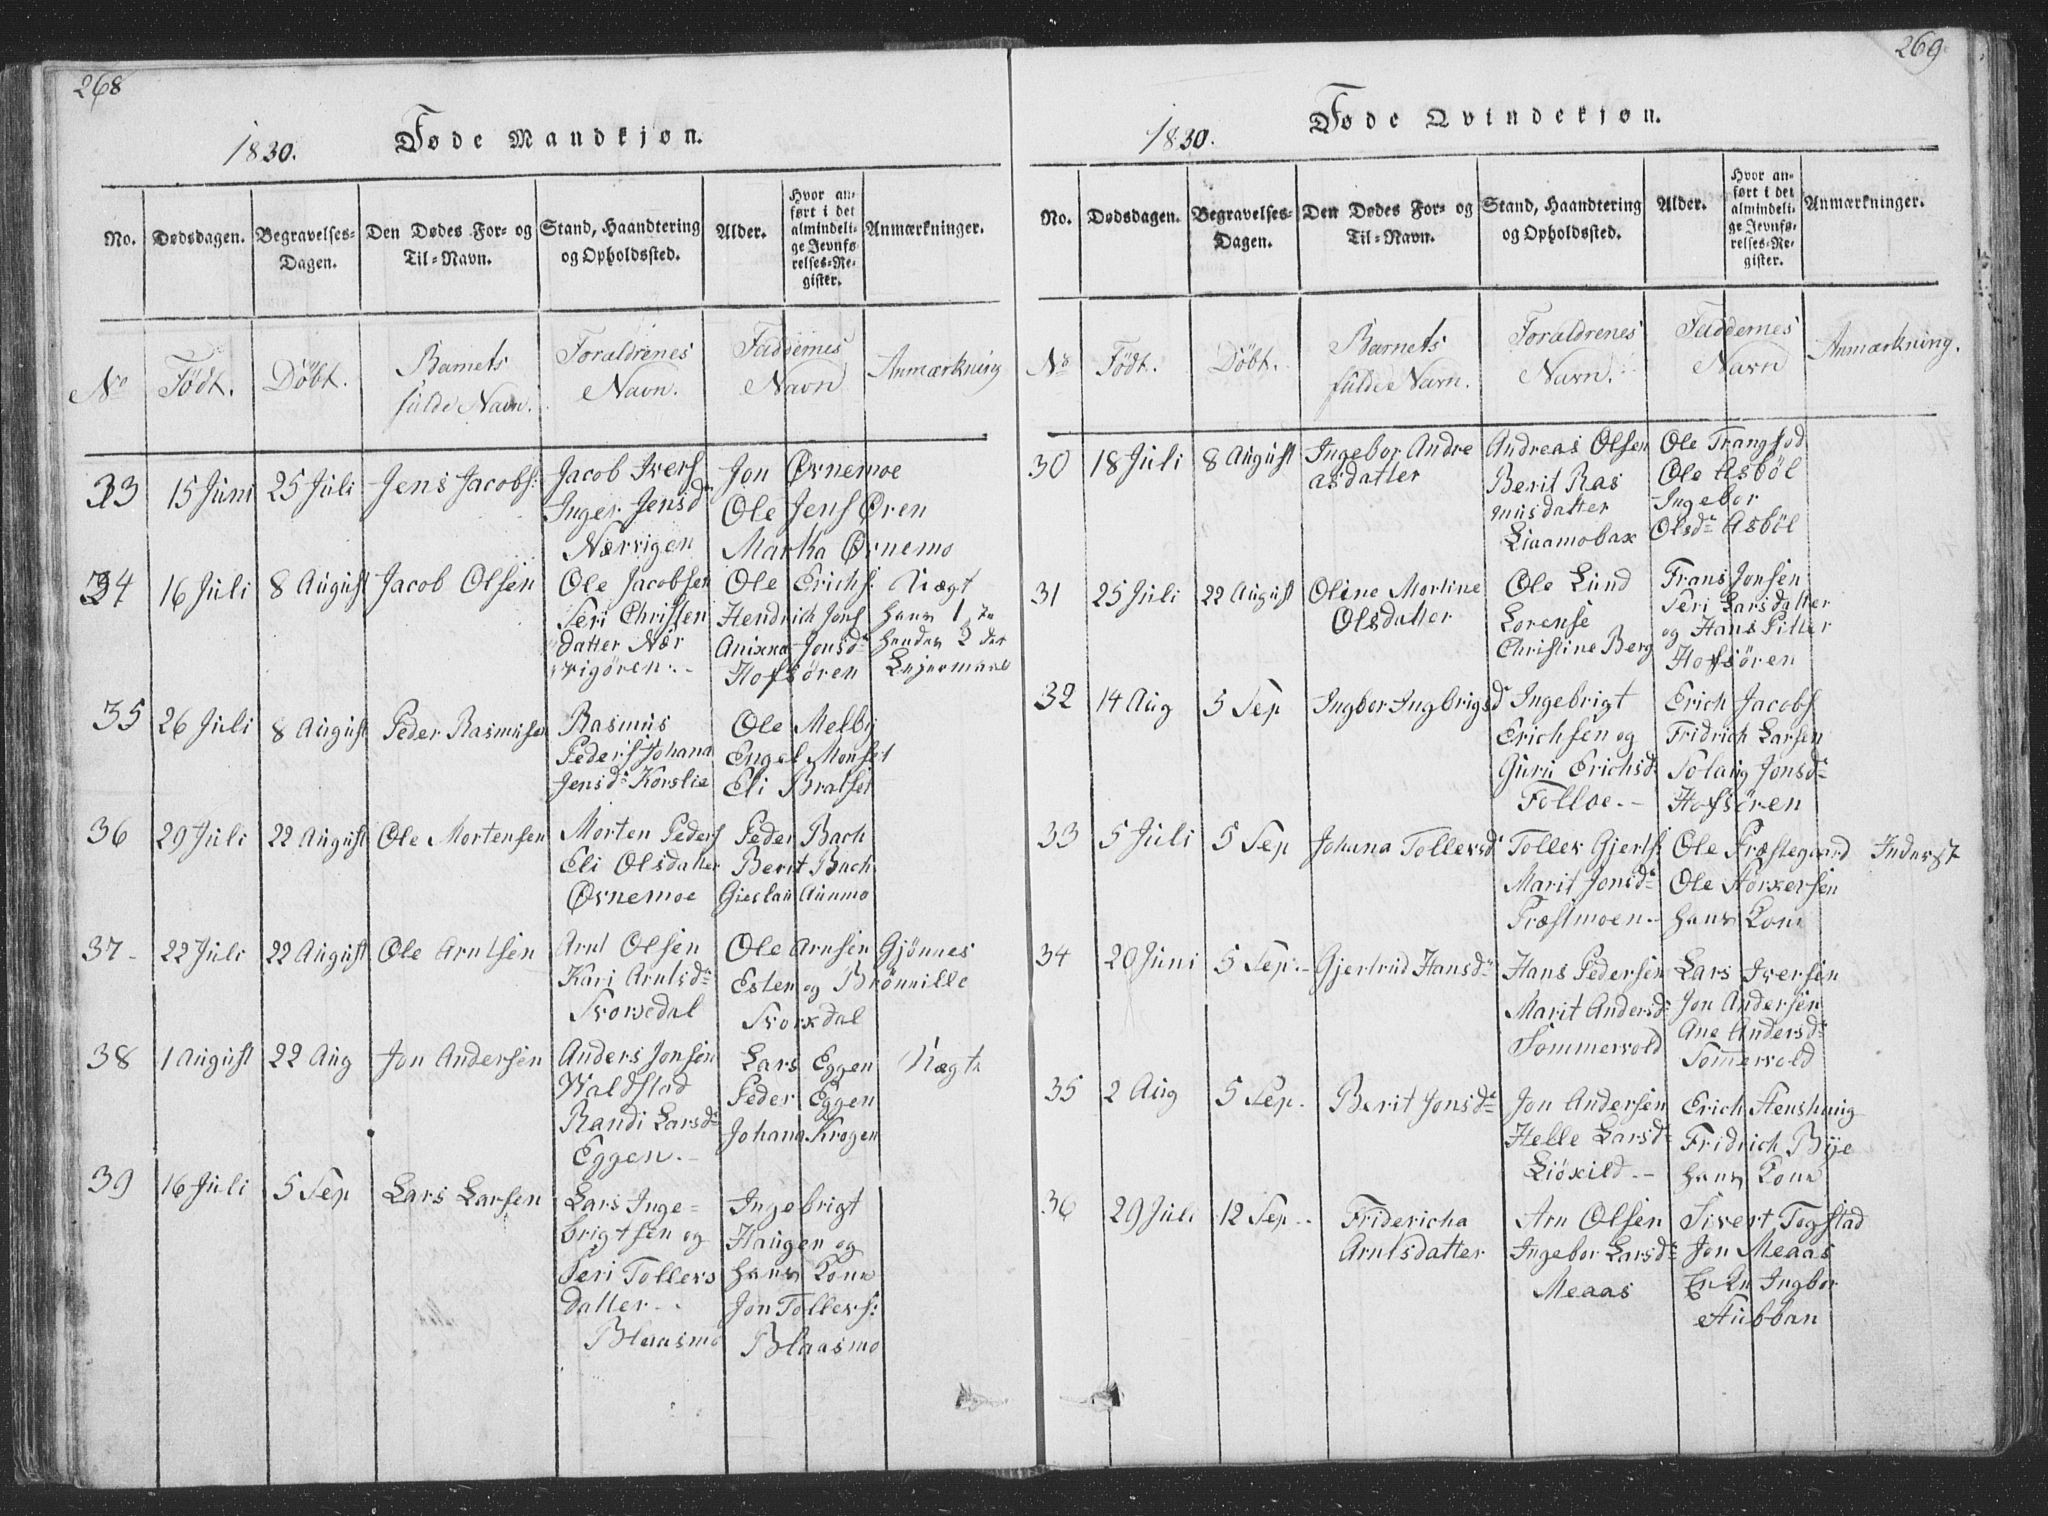 268
1830.
Føde Mandkjøn.
No.
Dødsdagen.
Begravelses-
Dagen.
Den Dødes For- og
Til-Navn.
Stand, Haandtering
og Opholdssted.
Alder.
Hvor an-
ført i det
almindeli-
ge Jevnfø-
relses-Re-
gister.
Anmærkninger.
No
Födt.
Döbt.
Barnets
fulde Navn.
Foraldrenes
Navn.
Faddernes
Navn
Anmærkning
33
15 Juni
25 Juli
Jens Jacobs:
Jacob Ivers
Inger Jensdr
Nærrigen
Jon Övnemoe
Ole Jens Ören
Marka Örnemo
34
16 Juli
8 August
Jacob Olsen
Ole Jacobsen
Seri Christen
datter Nær
vigören.-
Ole Erichs:
Hendrich Jons
Jonsdr
Hofsören
hans 1
hendes
Lejermaal
35
26 Juli
8 August
Peder Rasmusen
Rasmus
Peders Johana
Jensdr Korslie
Ole Melbj
Engel Monset
Eli Bratset
36
29 Juli
22 August
Ole Mortensen
Morten Peders
Eli Olsdatter
Övnemoe
Peder Bach
Berit Bach
Aunmo
37-
22 Juli
22 August
Ole Arntsen
Arnt Olsen
Kari Arntsdr
Svorxdal
Ole Arnsen Gjönnes
Esten og Brönnille
Svorxdal
38
1 August
22 Aug
Jon Andersen
Anders Jonsen
Waldstad
Randi Larsdr
Eggen.-
Lars Eggen
Peder Eggen
Johana Krogen
39
16 Juli
5 Sep
Lars Larsen
Lars Inge=
brigtsen og
Seri Tollers
datter-
Blaasmo
Ingebrigt
Haugen og
hans Kone
Jon Tollers:
Blaasmo
269
1830.
Føde Qvindekjøn.
No.
Dødsdagen.
Begravelses-
Dagen.
Den Dødes For- og
Til-Navn.
Stand, Haandtering
og Opholdssted.
Alder.
Hvor an-
ført i det
almindeli-
ge Jevnfø-
relses-Re-
gister.
Anmærkninger.
No
Födt.
Döbt.
Barnets
fulde Navn.
Foraldrenes
Navn.
Faddernes
Navn
Anmærkning.
30
18 Juli
8 August
Ingebor Andre
asdatter
Andreas Olsen
Berit Ras
musdatter
Liaamobax
Ole Trangsod
Ole Asböl
Ingebor
Olsdr Asböl
31
25 Juli
22 August
Oline Mortine
Olsdatter
Ole Lund
Lorense
Christine Berg
Frans Jonsen
Seri Larsdatter
og Hans Pitter
Hofsören
32
14 Aug
5 Sep
Ingbor Ingbrigsd
Ingebrigt
Erichsen og
Guru Erichsdr
Folloe.-
Erich Jacobs
Fridrich Larsen
Solaug Jonsdr
Hofsören
33
5 Juli
5 Sep
Johana Tollersdr
Toller Gjerts:
Marit Jonsdr
Præstmoen.-
Ole Præstegaard
Ole Horxersen
hans Kone
Inderst
34
20 Juni
5 Sep.-
Gjertrud Hansdr
Hans Pedersen
Marit Andersdr
Sommervold
Lars Iversen
Jon Andersen
Ane Andersdr
Somervold
35
2 Aug
5 Sep.
Berit Jonsdr
Jon Andersen
Helle Larsdr
Liöxild.-
Erich Henshaug
Fridrich Bÿe
hans Kone
36
29 Juli
12 Sep.
Fridericha
Arntsdatter
Arn Olsen
Ingebor Larsdr
Meaas
Sivert Togstad
Jon Meaas
Enke Ingbor
Hubban